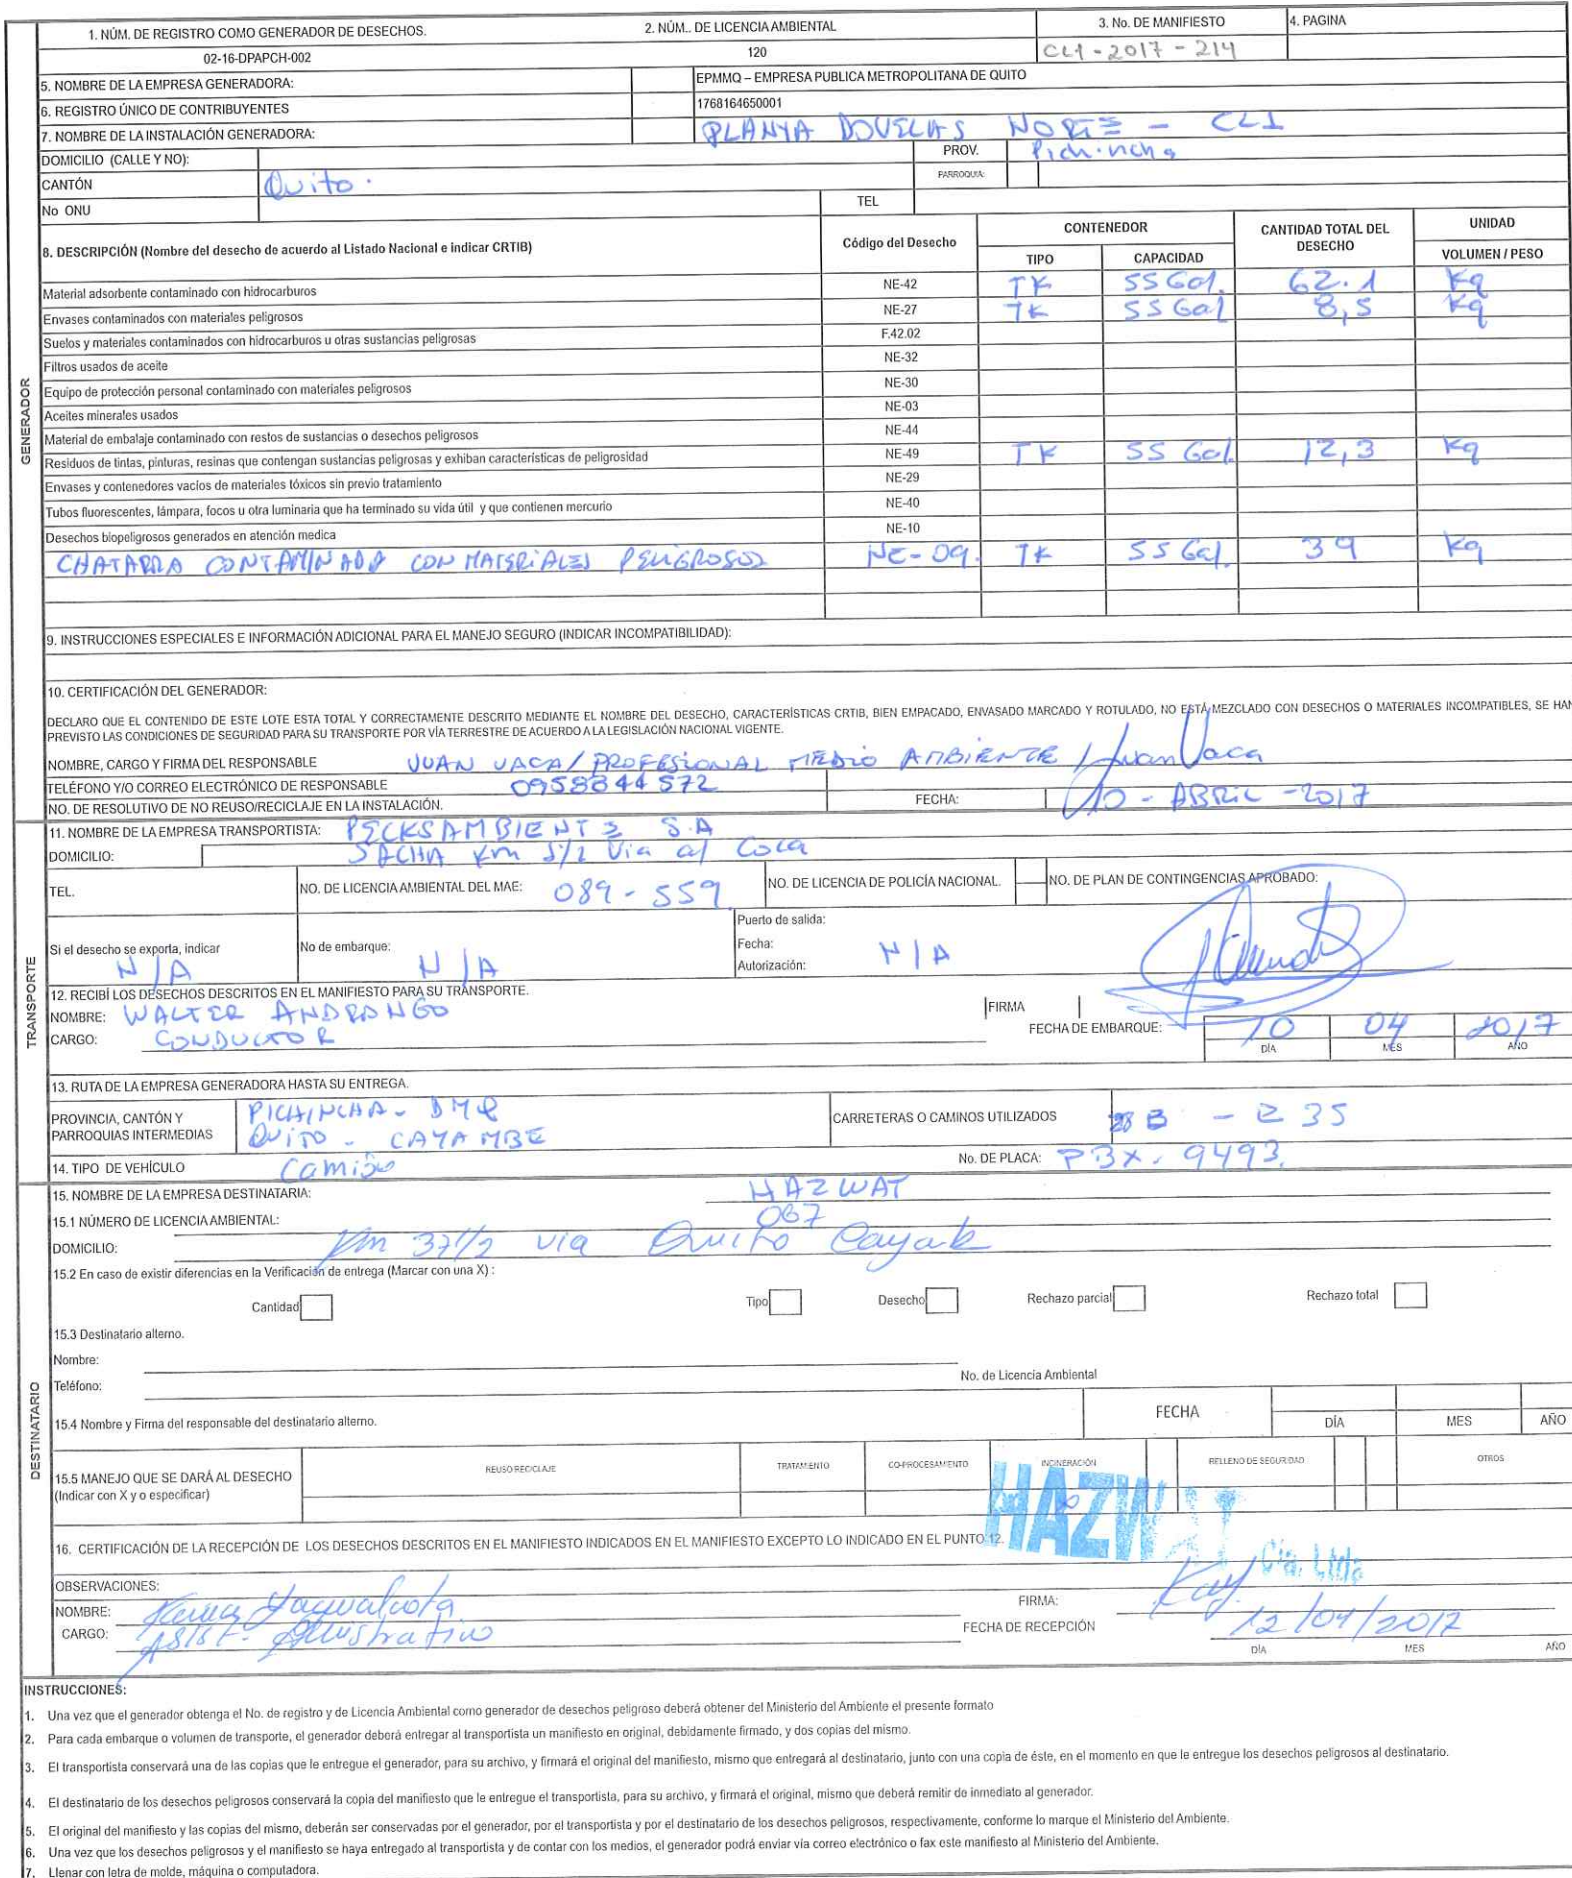 1. NÚM. DE REGISTRO COMO GENERADOR DE DESECHOS. 2. NÚM.. DE LICENCIA AMBIENTAL 3. No. DE MANIFIESTO 4. PAGINA
02-16-DPAPCH-002 120 CL1-2017-214
5. NOMBRE DE LA EMPRESA GENERADORA: EPMMQ – EMPRESA PUBLICA METROPOLITANA DE QUITO
6. REGISTRO ÚNICO DE CONTRIBUYENTES 1768164650001
7. NOMBRE DE LA INSTALACIÓN GENERADORA: PLANTA DOVELAS NORTE - CL1
DOMICILIO (CALLE Y NO): PROV. Pichincha
CANTÓN Quito. PARROQUIA:
No ONU TEL
8. DESCRIPCIÓN (Nombre del desecho de acuerdo al Listado Nacional e indicar CRTIB) Código del Desecho CONTENEDOR CANTIDAD TOTAL DEL DESECHO UNIDAD
TIPO CAPACIDAD VOLUMEN / PESO
Material adsorbente contaminado con hidrocarburos NE-42 TK 55 Gal. 62.1 Kg
Envases contaminados con materiales peligrosos NE-27 TK 55 Gal 8,5 Kg
Suelos y materiales contaminados con hidrocarburos u otras sustancias peligrosas F.42.02
Filtros usados de aceite NE-32
Equipo de protección personal contaminado con materiales peligrosos NE-30
Aceites minerales usados NE-03
Material de embalaje contaminado con restos de sustancias o desechos peligrosos NE-44
Residuos de tintas, pinturas, resinas que contengan sustancias peligrosas y exhiban características de peligrosidad NE-49 TK 55 Gal. 12,3 Kg
Envases y contenedores vacíos de materiales tóxicos sin previo tratamiento NE-29
Tubos fluorescentes, lámpara, focos u otra luminaria que ha terminado su vida útil y que contienen mercurio NE-40
Desechos biopeligrosos generados en atención medica NE-10
CHATARRA CONTAMINADA CON MATERIALES PELIGROSOS NE-09. TK 55 Gal. 39 Kg
9. INSTRUCCIONES ESPECIALES E INFORMACIÓN ADICIONAL PARA EL MANEJO SEGURO (INDICAR INCOMPATIBILIDAD):
GENERADOR
10. CERTIFICACIÓN DEL GENERADOR:
DECLARO QUE EL CONTENIDO DE ESTE LOTE ESTA TOTAL Y CORRECTAMENTE DESCRITO MEDIANTE EL NOMBRE DEL DESECHO, CARACTERÍSTICAS CRTIB, BIEN EMPACADO, ENVASADO MARCADO Y ROTULADO, NO ESTÁ MEZCLADO CON DESECHOS O MATERIALES INCOMPATIBLES, SE HAN
PREVISTO LAS CONDICIONES DE SEGURIDAD PARA SU TRANSPORTE POR VÍA TERRESTRE DE ACUERDO A LA LEGISLACIÓN NACIONAL VIGENTE.
NOMBRE, CARGO Y FIRMA DEL RESPONSABLE JUAN VACA / PROFESIONAL MEDIO AMBIENTE / Juan Vaca
TELÉFONO Y/O CORREO ELECTRÓNICO DE RESPONSABLE 0958844572
NO. DE RESOLUTIVO DE NO REUSO/RECICLAJE EN LA INSTALACIÓN. FECHA: 10 - ABRIL - 2017
11. NOMBRE DE LA EMPRESA TRANSPORTISTA: PECKSAMBIENTE S.A
DOMICILIO: SACHA Km 5/2 Via al Coca
TEL. NO. DE LICENCIA AMBIENTAL DEL MAE: 089-559 NO. DE LICENCIA DE POLICÍA NACIONAL. NO. DE PLAN DE CONTINGENCIAS APROBADO:
Si el desecho se exporta, indicar N/A No de embarque: N/A Puerto de salida:
Fecha: N/A
Autorización:
TRANSPORTE
12. RECIBÍ LOS DESECHOS DESCRITOS EN EL MANIFIESTO PARA SU TRANSPORTE.
NOMBRE: WALTER ANDRANGO FIRMA
CARGO: CONDUCTOR FECHA DE EMBARQUE: 10 04 2017
DÍA MES AÑO
13. RUTA DE LA EMPRESA GENERADORA HASTA SU ENTREGA.
PROVINCIA, CANTÓN Y PARROQUIAS INTERMEDIAS PICHINCHA - DMQ
QUITO - CAYAMBE CARRETERAS O CAMINOS UTILIZADOS 28 B - E 35
14. TIPO DE VEHÍCULO Camión No. DE PLACA: PBX. 9493.
15. NOMBRE DE LA EMPRESA DESTINATARIA: HAZWAT
15.1 NÚMERO DE LICENCIA AMBIENTAL: 067
DOMICILIO: Km 37 1/2 via Quito
15.2 En caso de existir diferencias en la Verificación de entrega (Marcar con una X) :
Cantidad Tipo Desecho Rechazo parcial Rechazo total
15.3 Destinatario alterno.
Nombre:
Teléfono: No. de Licencia Ambiental
DESTINATARIO
15.4 Nombre y Firma del responsable del destinatario alterno. FECHA DÍA MES AÑO
15.5 MANEJO QUE SE DARÁ AL DESECHO (Indicar con X y o especificar) REUSO/RECICLAJE TRATAMIENTO CO-PROCESAMIENTO INCINERACIÓN RELLENO DE SEGURIDAD OTROS
HAZWAT Cia. Ltda
16. CERTIFICACIÓN DE LA RECEPCIÓN DE LOS DESECHOS DESCRITOS EN EL MANIFIESTO INDICADOS EN EL MANIFIESTO EXCEPTO LO INDICADO EN EL PUNTO 12.
OBSERVACIONES:
NOMBRE: FIRMA:
CARGO: FECHA DE RECEPCIÓN 12/04/2017
DÍA MES AÑO
INSTRUCCIONES:
1. Una vez que el generador obtenga el No. de registro y de Licencia Ambiental como generador de desechos peligroso deberá obtener del Ministerio del Ambiente el presente formato
2. Para cada embarque o volumen de transporte, el generador deberá entregar al transportista un manifiesto en original, debidamente firmado, y dos copias del mismo.
3. El transportista conservará una de las copias que le entregue el generador, para su archivo, y firmará el original del manifiesto, mismo que entregará al destinatario, junto con una copia de éste, en el momento en que le entregue los desechos peligrosos al destinatario.
4. El destinatario de los desechos peligrosos conservará la copia del manifiesto que le entregue el transportista, para su archivo, y firmará el original, mismo que deberá remitir de inmediato al generador.
5. El original del manifiesto y las copias del mismo, deberán ser conservadas por el generador, por el transportista y por el destinatario de los desechos peligrosos, respectivamente, conforme lo marque el Ministerio del Ambiente.
6. Una vez que los desechos peligrosos y el manifiesto se haya entregado al transportista y de contar con los medios, el generador podrá enviar vía correo electrónico o fax este manifiesto al Ministerio del Ambiente.
7. Llenar con letra de molde, máquina o computadora.